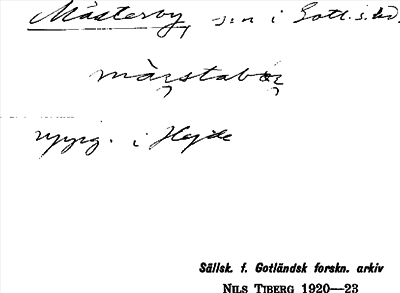 Mästerby, s:n i Gotl. s. hd.
màrstabör
uppg. i Hejde
Sällsk. f. Gotländsk forskn. arkiv
NILS TIBERG 1920—23